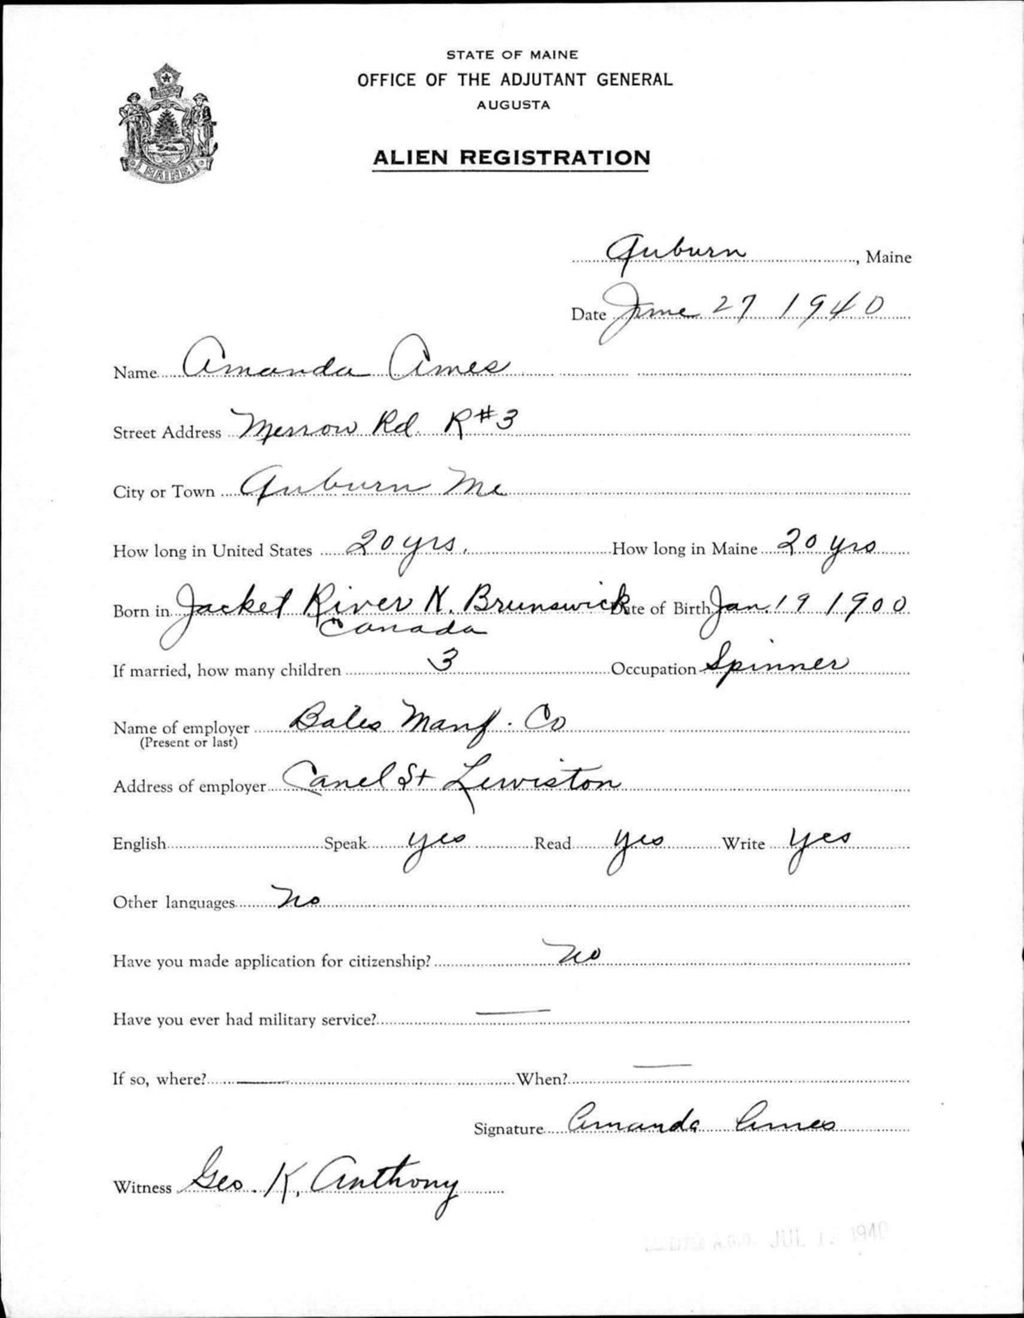 STATE OF MAINE
OFFICE OF THE ADJUTANT GENERAL
AUGUSTA
ALIEN REGISTRATION
MAINE
Auburn, Maine
Date June 27 1940
Name Amanda Ames
Street Address Merrow Rd R#3
City or Town Auburn Me
How long in United States 20 yrs. How long in Maine 20 yrs
Born in Jacket River N. Brunswick Date of Birth Jan. 19 1900
Canada
If married, how many children 3 Occupation Spinner
Name of employer Bates Manf. Co
(Present or last)
Address of employer Canel St Lewiston
English Speak yes Read yes Write yes
Other languages No
Have you made application for citizenship? No
Have you ever had military service? —
If so, where? — When? —
Signature Amanda Ames
Witness Geo. K. Anthony
A.G.O. JUL 1940